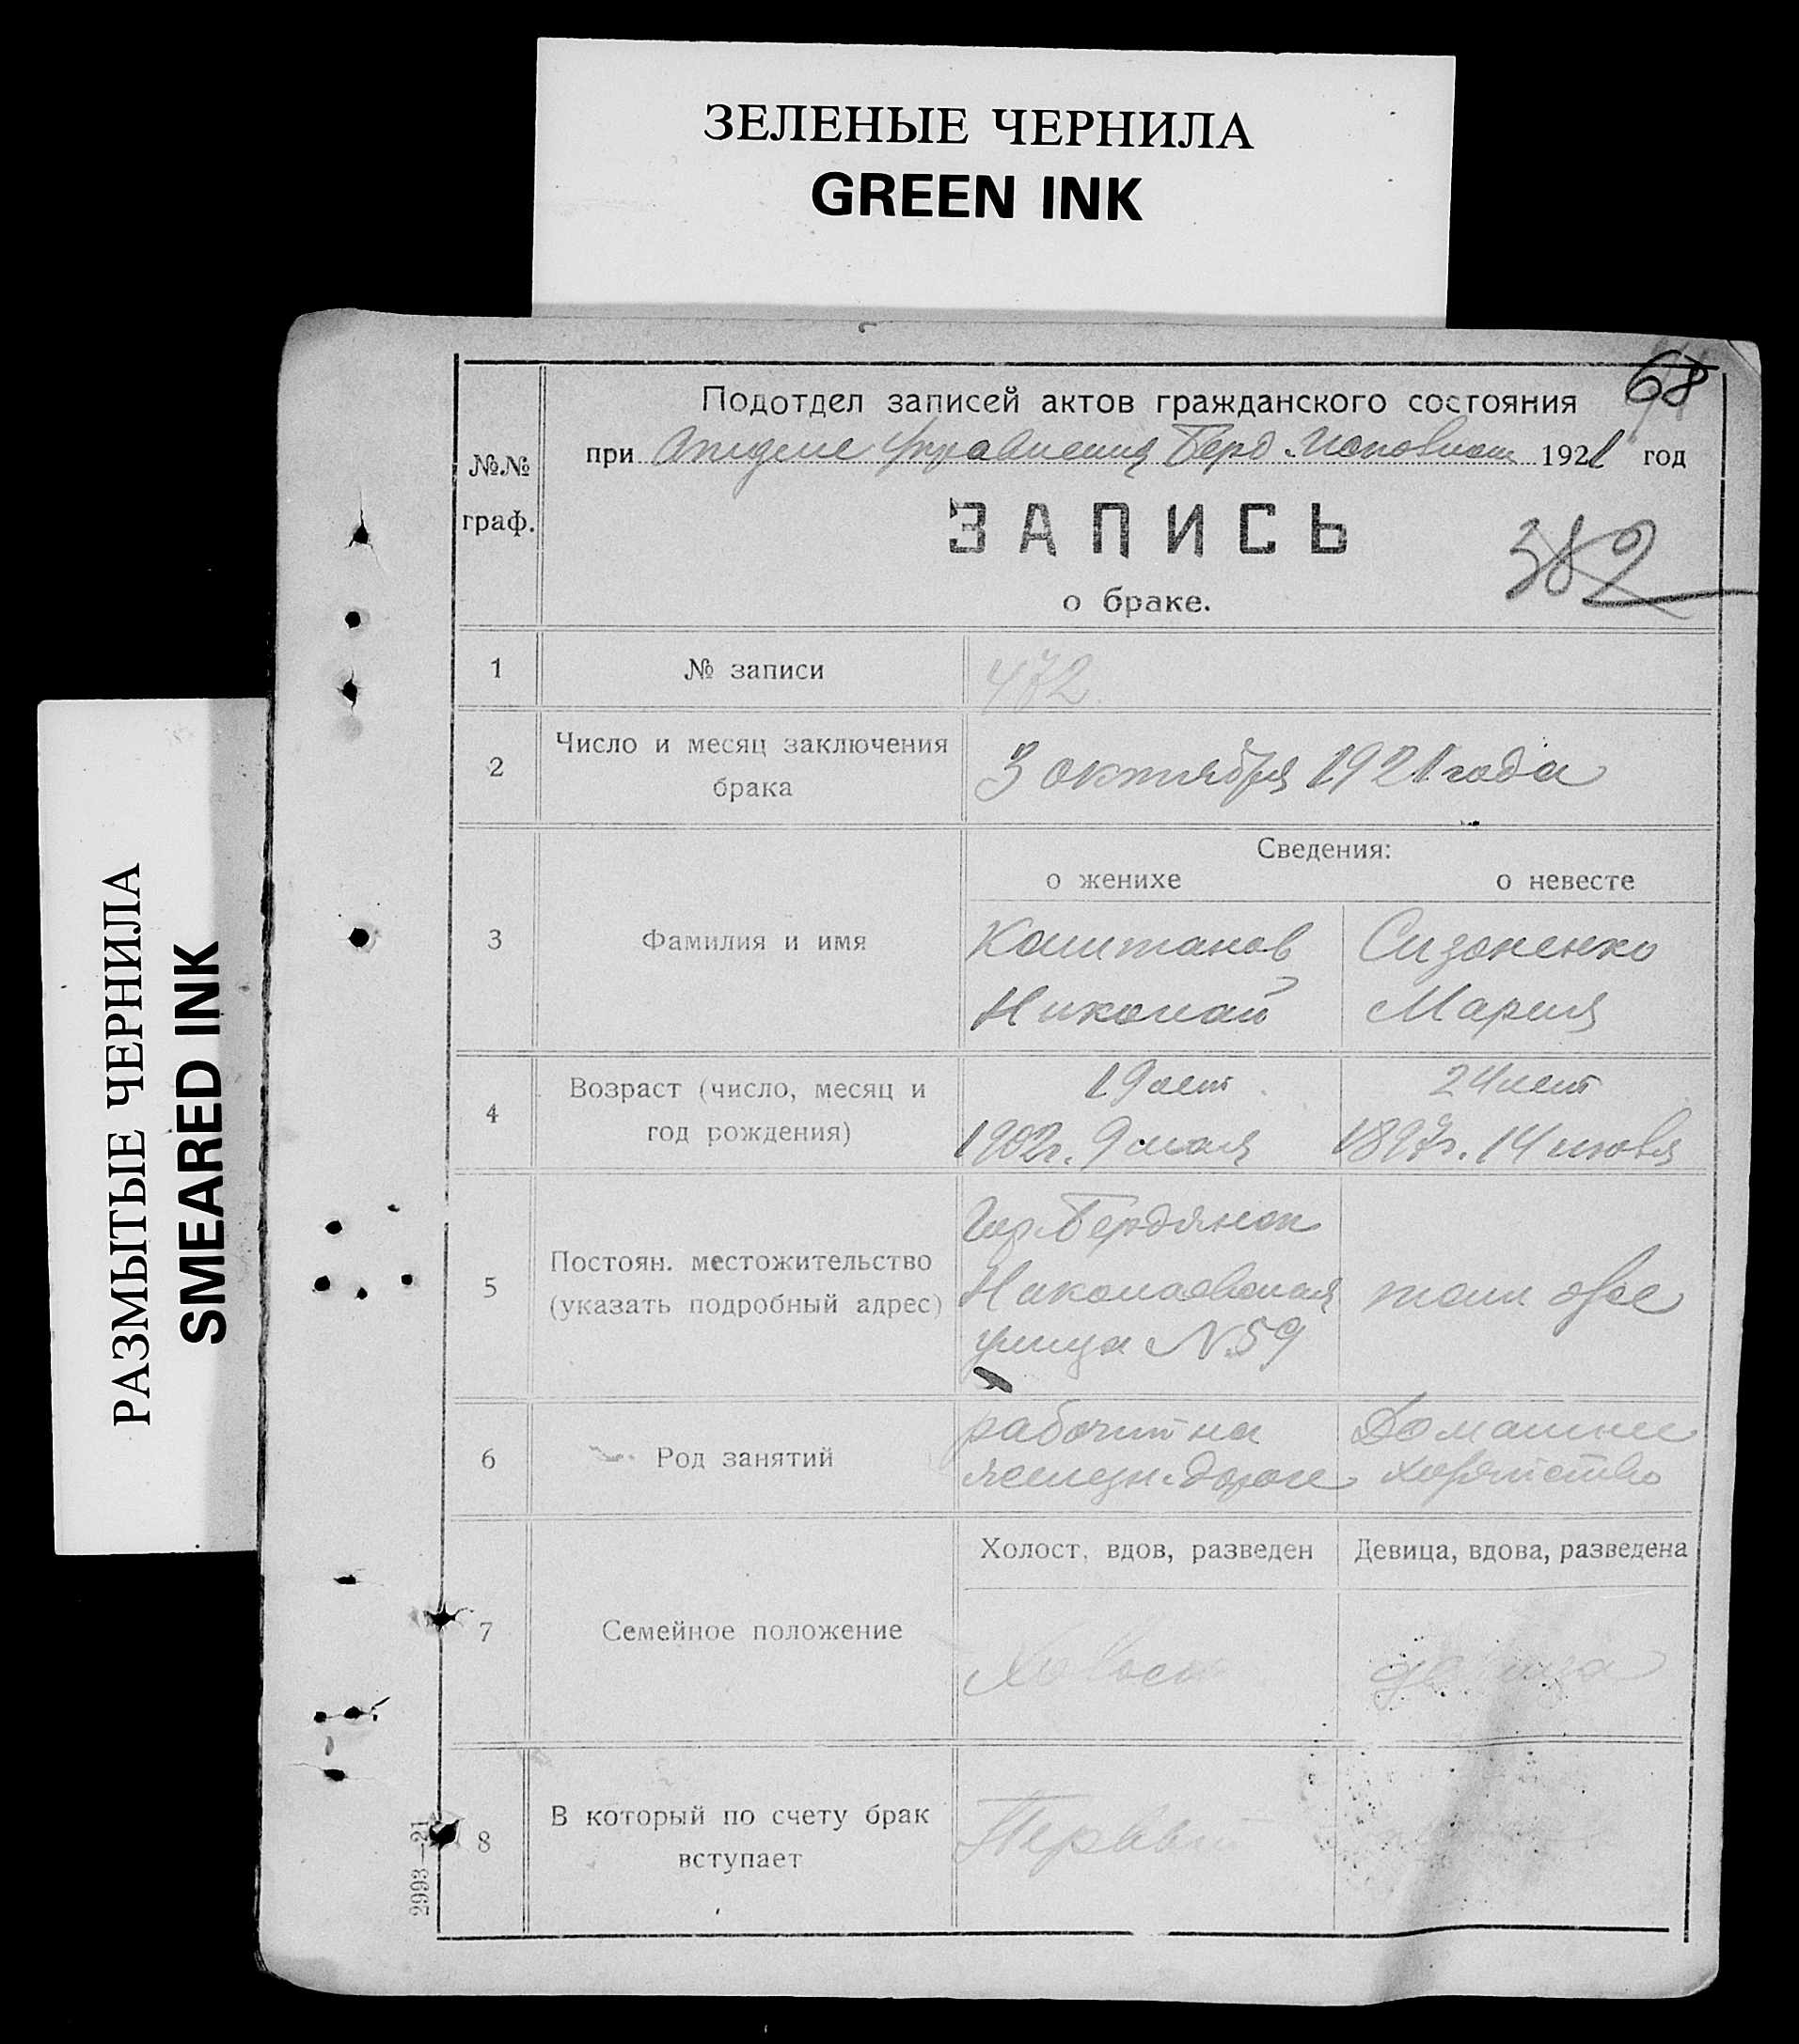 ЗЕЛЕНЫЕ ЧЕРНИЛА
GREEN INK
РАЗМЫТЫЕ ЧЕРНИЛА
SMEARED INK
68
Подотдел записей актов гражданского состояния
при Отделе Управления Берд. Исполком 1921 год
№№ граф.
ЗАПИСЬ
382
о браке.
1 № записи 472
2 Число и месяц заключения брака 3 октября 1921 года
Сведения:
о женихе о невесте
3 Фамилия и имя
Каштанов Сизоненко
Николай Мария
4 Возраст (число, месяц и год рождения)
19 лет 24 лет
1902г. 9 мая 1897г. 14 июля
5 Постоян. местожительство (указать подробный адрес)
Гор. Бердянск
Николаевская там же
улица N 59
6 Род занятий
рабочий на Домашнее
железн. дороге хозяйство
Холост, вдов, разведен Девица, вдова, разведена
7 Семейное положение
Холост девица
8 В который по счету брак вступает
Первый
2993—21